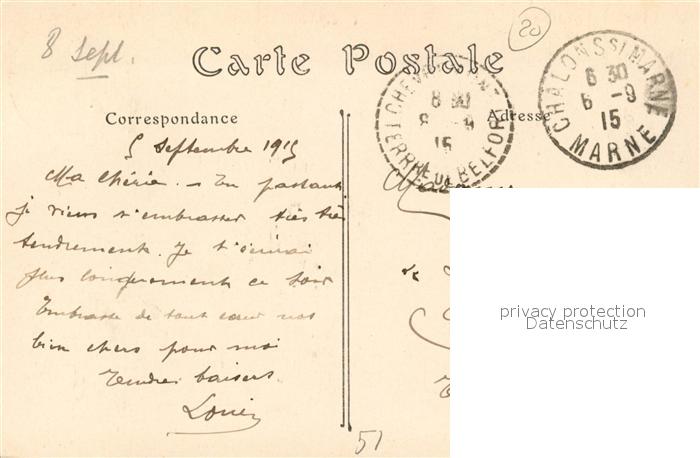 8 Sept.
20
Carte Postale
CHALONS S/ MARNE
6 30
6 -9
15
MARNE
CHEVREMONT
8 30
8 -9
15
TERRRE DE BELFORT
Correspondance
Adresse
5 Septembre 1915
Ma chérie. - En passant
je viens t'embrasser très très
tendrement. Je t'écrirai
plus longuement ce soir
Embrasse de tout cœur nos
bien chers pour moi
Tendres baisers
Louis
51
privacy protection
Datenschutz